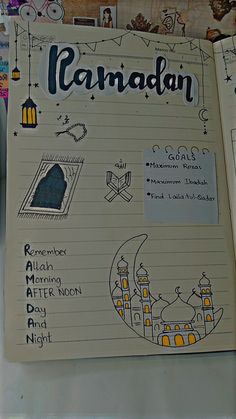 Ramadan
الله
GOALS
• Maximum Rozas
• Maximum Ibadah
• Find Laila-tul-Qadar
Remember
Allah
Morning
AFTER NOON
Day
And
Night